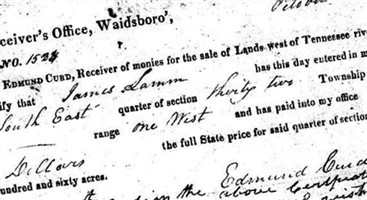 ceiver's Office, Waidsboro',
No. 1523
Edmund Curd, Receiver of monies for the sale of Lands west of Tennessee rive
ify that James Lamm has this day entered in m
South East quarter of section thirty two Township
range one West and has paid into my office
the full State price for said quarter of section
Dollars
undred and sixty acres.
Edmund Curd
in the above Certificat